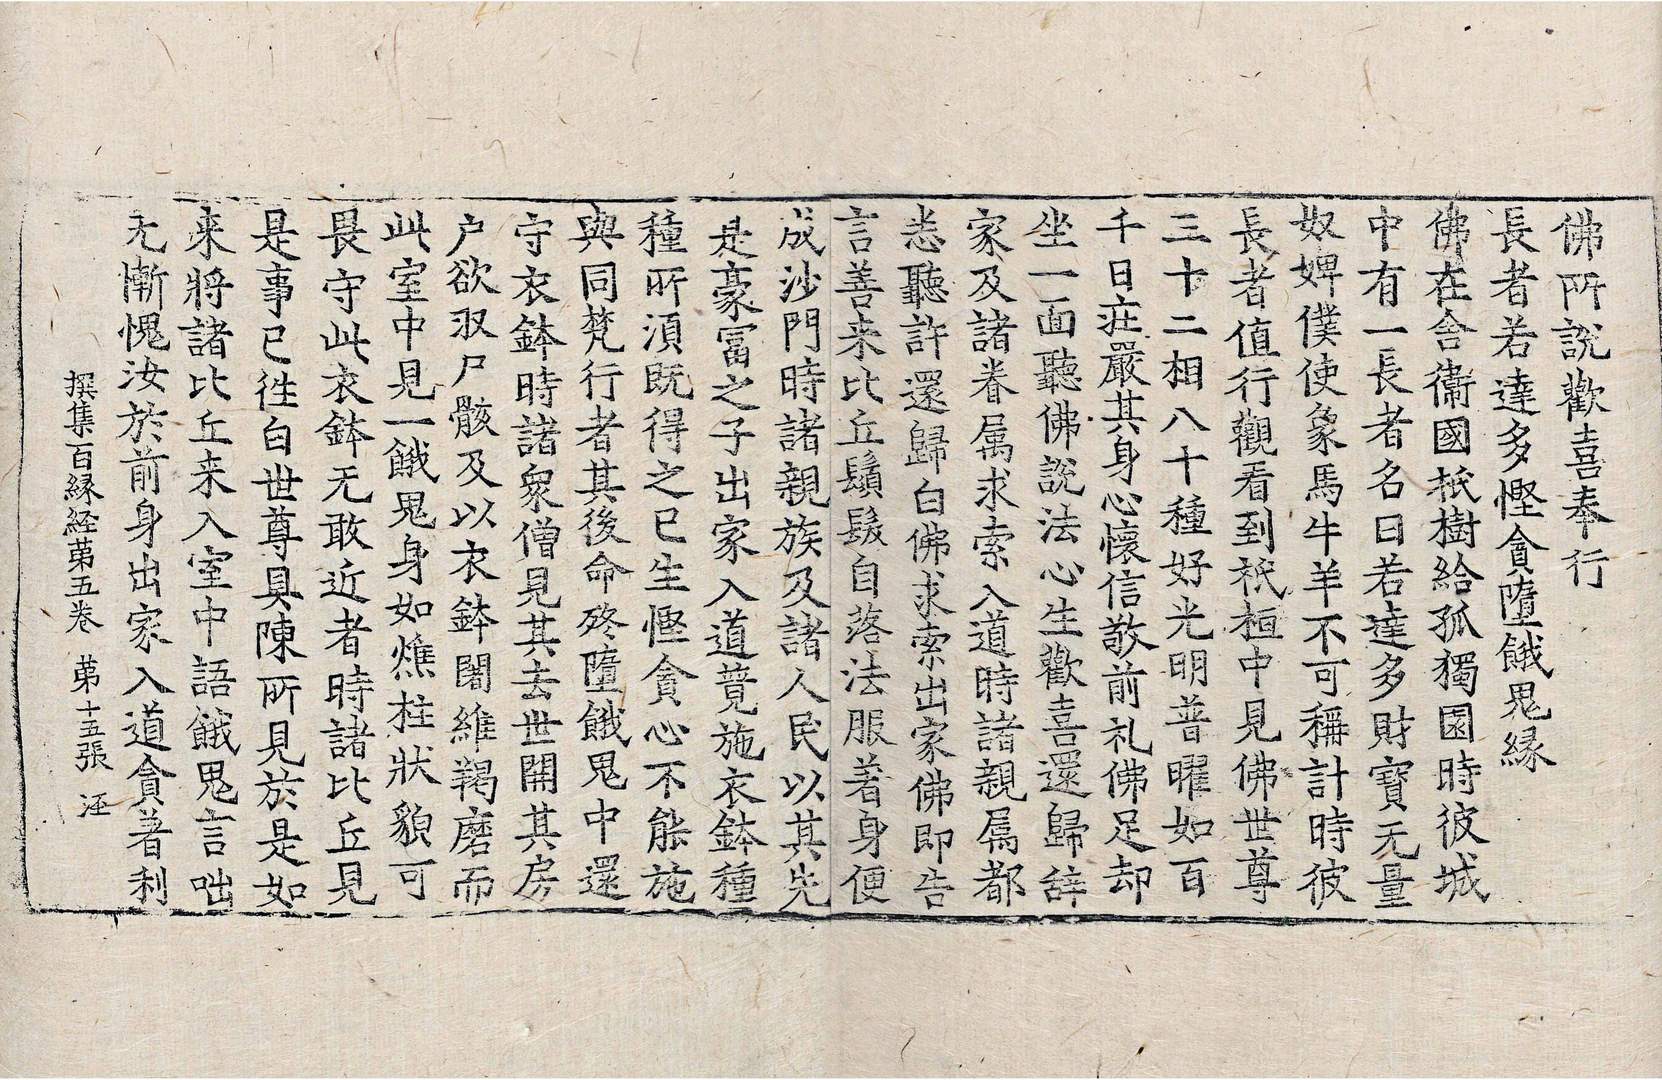 佛所說歡喜奉行
長者若達多慳貪墮餓鬼縁
佛在舍衛國祇樹給孤獨園時彼城
中有一長者名曰若達多財寶无量
奴婢僕使象馬牛羊不可稱計時彼
長者值行觀看到祇桓中見佛世尊
三十二相八十種好光明普曜如百
千日莊嚴其身心懷信敬前礼佛足却
坐一面聽佛説法心生歡喜還歸辞
家及諸眷属求索入道時諸親属都
悉聽許還歸白佛求索出家佛即告
言善来比丘鬚髮自落法服著身便
成沙門時諸親族及諸人民以其先
是豪冨之子出家入道競施衣鉢種
種所湏既得之已生慳貪心不能施
與同梵行者其後命終墮餓鬼中還
守衣鉢時諸衆僧見其去世開其房
户欲取尸骸及以衣鉢闍維羯磨而
此室中見一餓鬼身如燋柱狀貌可
畏守此衣鉢无敢近者時諸比丘見
是事已徃白世尊具陳所見於是如
来將諸比丘来入室中語餓鬼言咄
无慚愧汝於前身出家入道貪著利
撰集百縁経苐五卷　苐十五張　涇